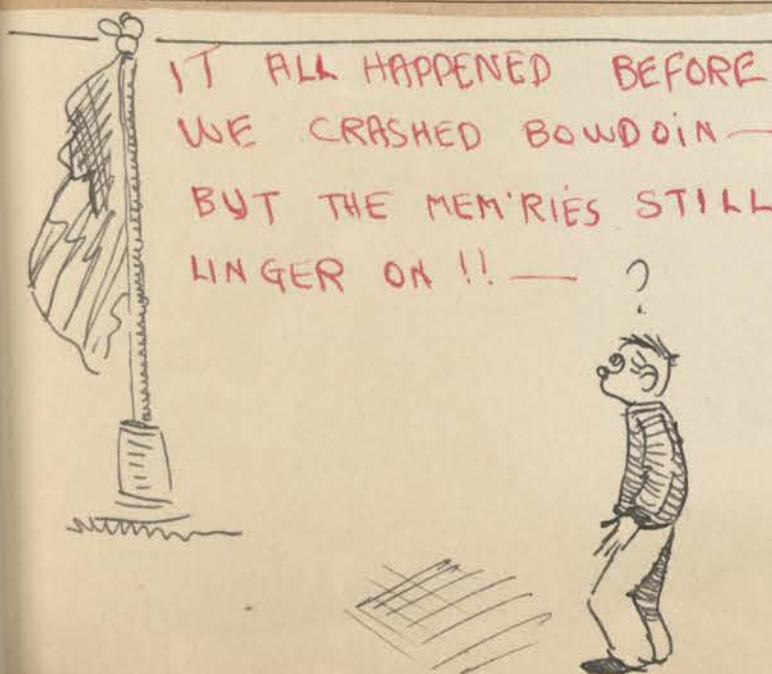 IT ALL HAPPENED BEFORE
WE CRASHED BOWDOIN —
BUT THE MEM'RIES STILL
LINGER ON !! —
?